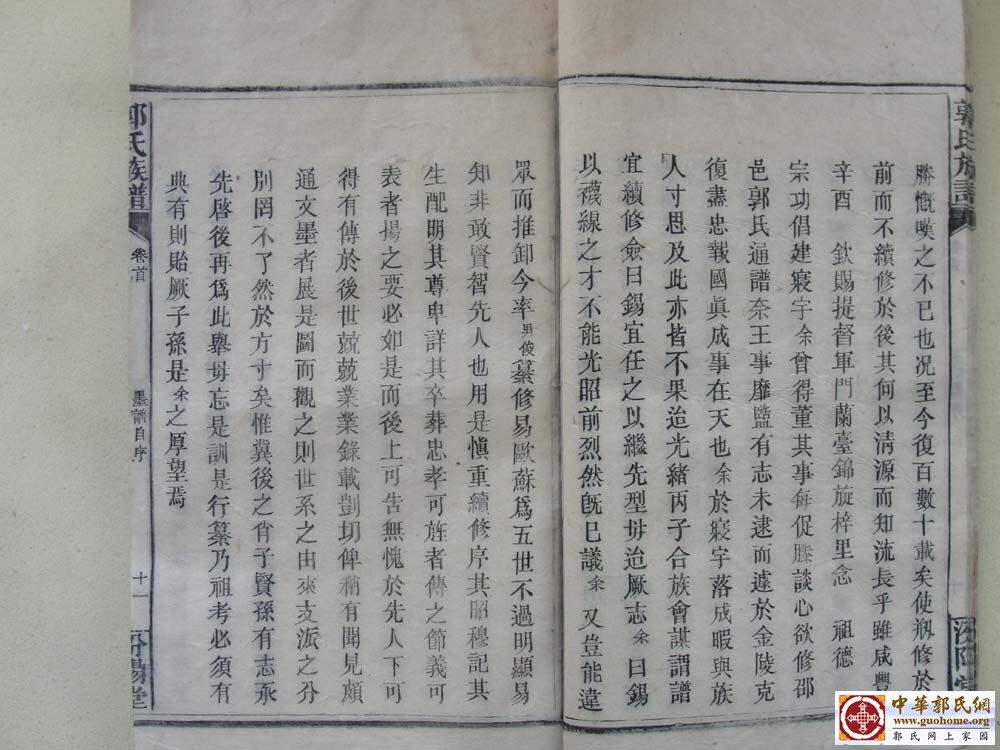 郭氏族譜
汾陽堂
勝慨嘆之不已也况至今復百數十載矣使剏修於
前而不續修於後其何以清源而知流長乎雖咸豐
辛酉 欽賜提督軍門蘭臺錦旋梓里念 祖德
宗功倡建寢宇余曾得董其事每促膝談心欲修邵
邑郭氏通譜奈王事靡盬有志未逮而遽於金陵克
復盡忠報國眞成事在天也余於寢宇落成暇與族
人寸思及此亦皆不果迨光緒丙子合族會謀謂譜
宜續修僉曰錫宜任之以繼先型毋迨厥志余曰錫
以襪線之才不能光昭前烈然旣巳議余又豈能違
眾而推卸今率男俊纂修易歐蘇爲五世不過明顯易
知非敢賢智先人也用是愼重續修序其昭穆記其
生配明其尊卑詳其卒葬忠孝可旌者傳之節義可
表者揚之要必如是而後上可告無愧於先人下可
得有傳於後世兢兢業業錄載剴切俾稍有聞見頗
通文墨者展是圖而觀之則世系之由來支派之分
別罔不了然於方寸矣惟冀後之肖子賢孫有志承
先啓後再爲此舉毋忘是訓是行纂乃祖考必須有
典有則貽厥子孫是余之厚望焉
郭氏族譜
卷首
墨譜自序
十一
汾陽堂
中華郭氏網
www.guohome.org
郭氏网上家園